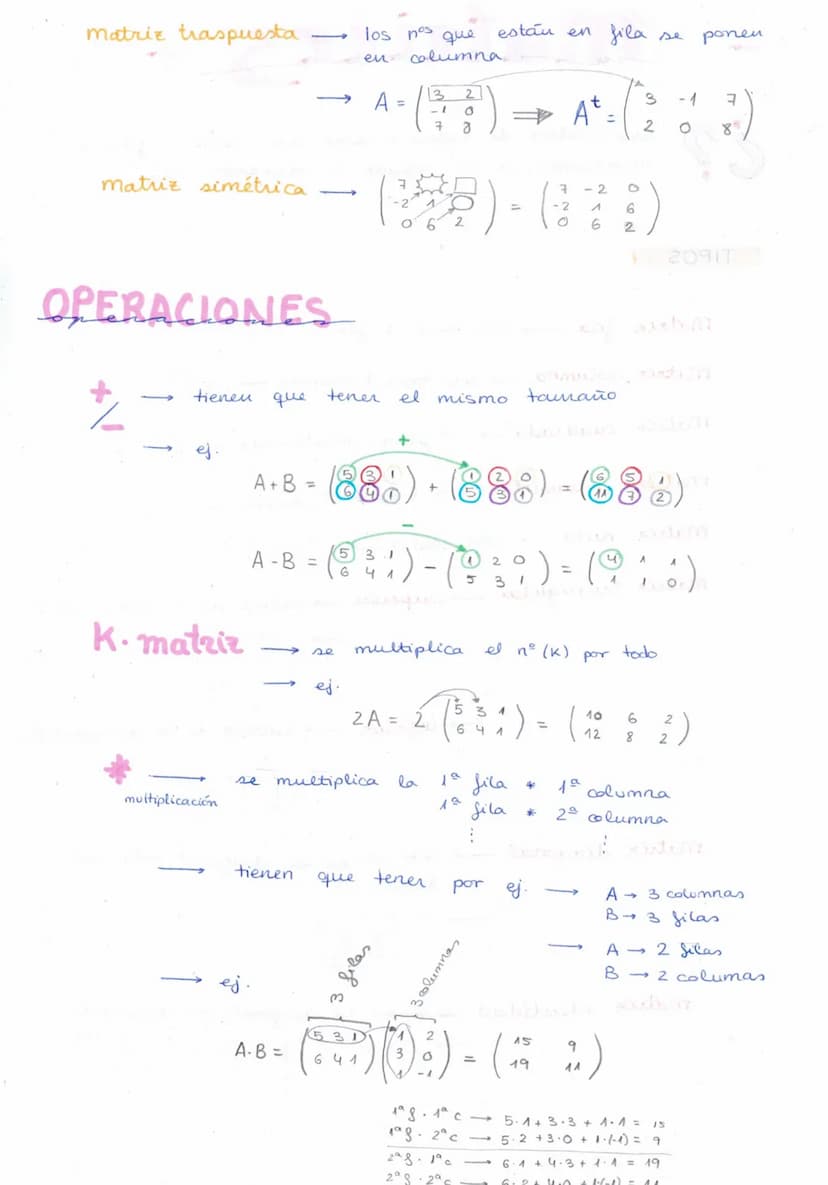 matriz traspuesta → los nos que están en fila se ponen
en columna
→ A = (3 2 ⇒ At = (3 -1 7
-1 0 2 0 8)
7 8)
matriz simétrica → (7 = (7 -2 0
-2 1 -2 1 6
0 6 2) 0 6 2)
TIPOS
OPERACIONES
operaciones
+
/
- → tienen que tener el mismo tamaño
→ ej.
+
A+B = (5 3 1 + (1 2 0 = (6 5 1
6 4 1) 5 3 1) 11 7 2)
-
A-B = (5 3 1 - (1 2 0 = (4 1 1
6 4 1) 5 3 1) 1 1 0)
K. matriz → se multiplica el nº (K) por todo
→ ej.
2A = 2 (5 3 1 = (10 6 2
6 4 1) 12 8 2)
* → se multiplica la 1ª fila * 1ª columna
multiplicación 1ª fila * 2ª columna
⋮ ⋮
→ tienen que tener por ej. → A → 3 columnas
B → 3 filas
→ A → 2 filas
B → 2 columas
→ ej. 3 filas 3 columnas
A.B = (5 3 1 (1 2 = (15 9
6 4 1) 3 0 19 11)
1 -1)
1ª f. 1ª c → 5·1 + 3·3 + 1·1 = 15
1ª f. 2ª c → 5·2 + 3·0 + 1·(-1) = 9
2ª f. 1ª c → 6·1 + 4·3 + 1·1 = 19
2ª f. 2ª c → 6·2 + 4·0 + 1·(-1) = 11